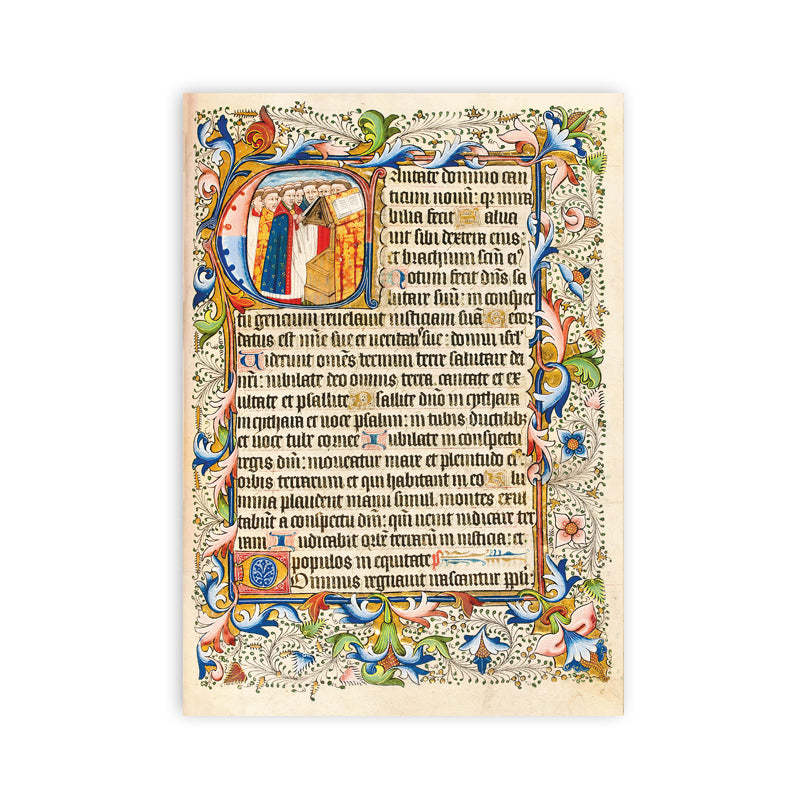 Cantate domino can
ticum nouū: qr mira
bilia fecit Salua
uit sibi dextera eius:
et brachium scm̄ eiꝰ
Notum fecit dn̄s sa
lutare suū: in conspec
tu gencium reuelauit iusticiam suā Recor
datus est mīe sue et ueritatis sue: domui isrl̄
Uiderunt om̄es termini terre salutare dei
nr̄i: iubilate deo omnis terra. cantate et ex
ultate et psallite Psallite dn̄o in cythara
in cythara et uoce psalmi: in tubis ductilib
et uoce tube cornee Iubilate in conspectu
regis dn̄i: moueatur mare et plenitudo eiꝰ
orbis terrarum et qui habitant in eo Flu
mina plaudent manu simul, montes exul
tabunt a conspectu dn̄i: qm̄ uenit iudicare ter
ram Iudicabit orbē terrarū in iusticia: et
populos in equitate
Dominus regnauit irascantur ppl̄i: